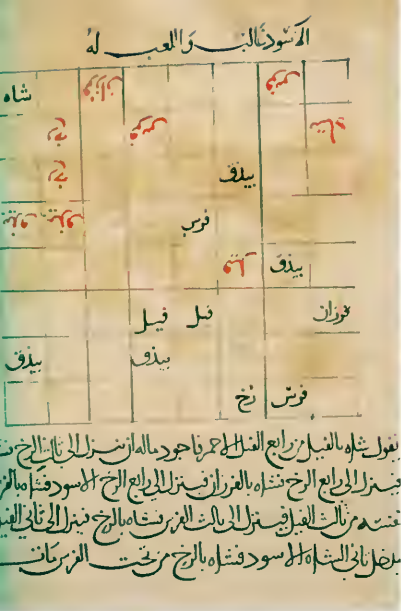 الاسود غالب واللعب له
فرس فرزان شاه
شاه فرس رخ
بيذق رخ
فرس بيذق بيذق
بيذق فيل
فرزان فيل فيل
بيذق بيذق
فرس رخ
يقول شاه بالفيل من رابع الفيل الاحمر فاجود ماله ان ينزل الى ثالث الرخ
فينزل الى رابع الرخ فشاه بالفرزان فينزل الى رابع الرخ الاسود فشاه
من ثالث الفيل فينزل الى ثالث الفرس فشاه بالرخ فينزل الى ثاني الفيل
يدخل ثاني الشاه الاسود فشاه بالرخ من تحت الفرس مات